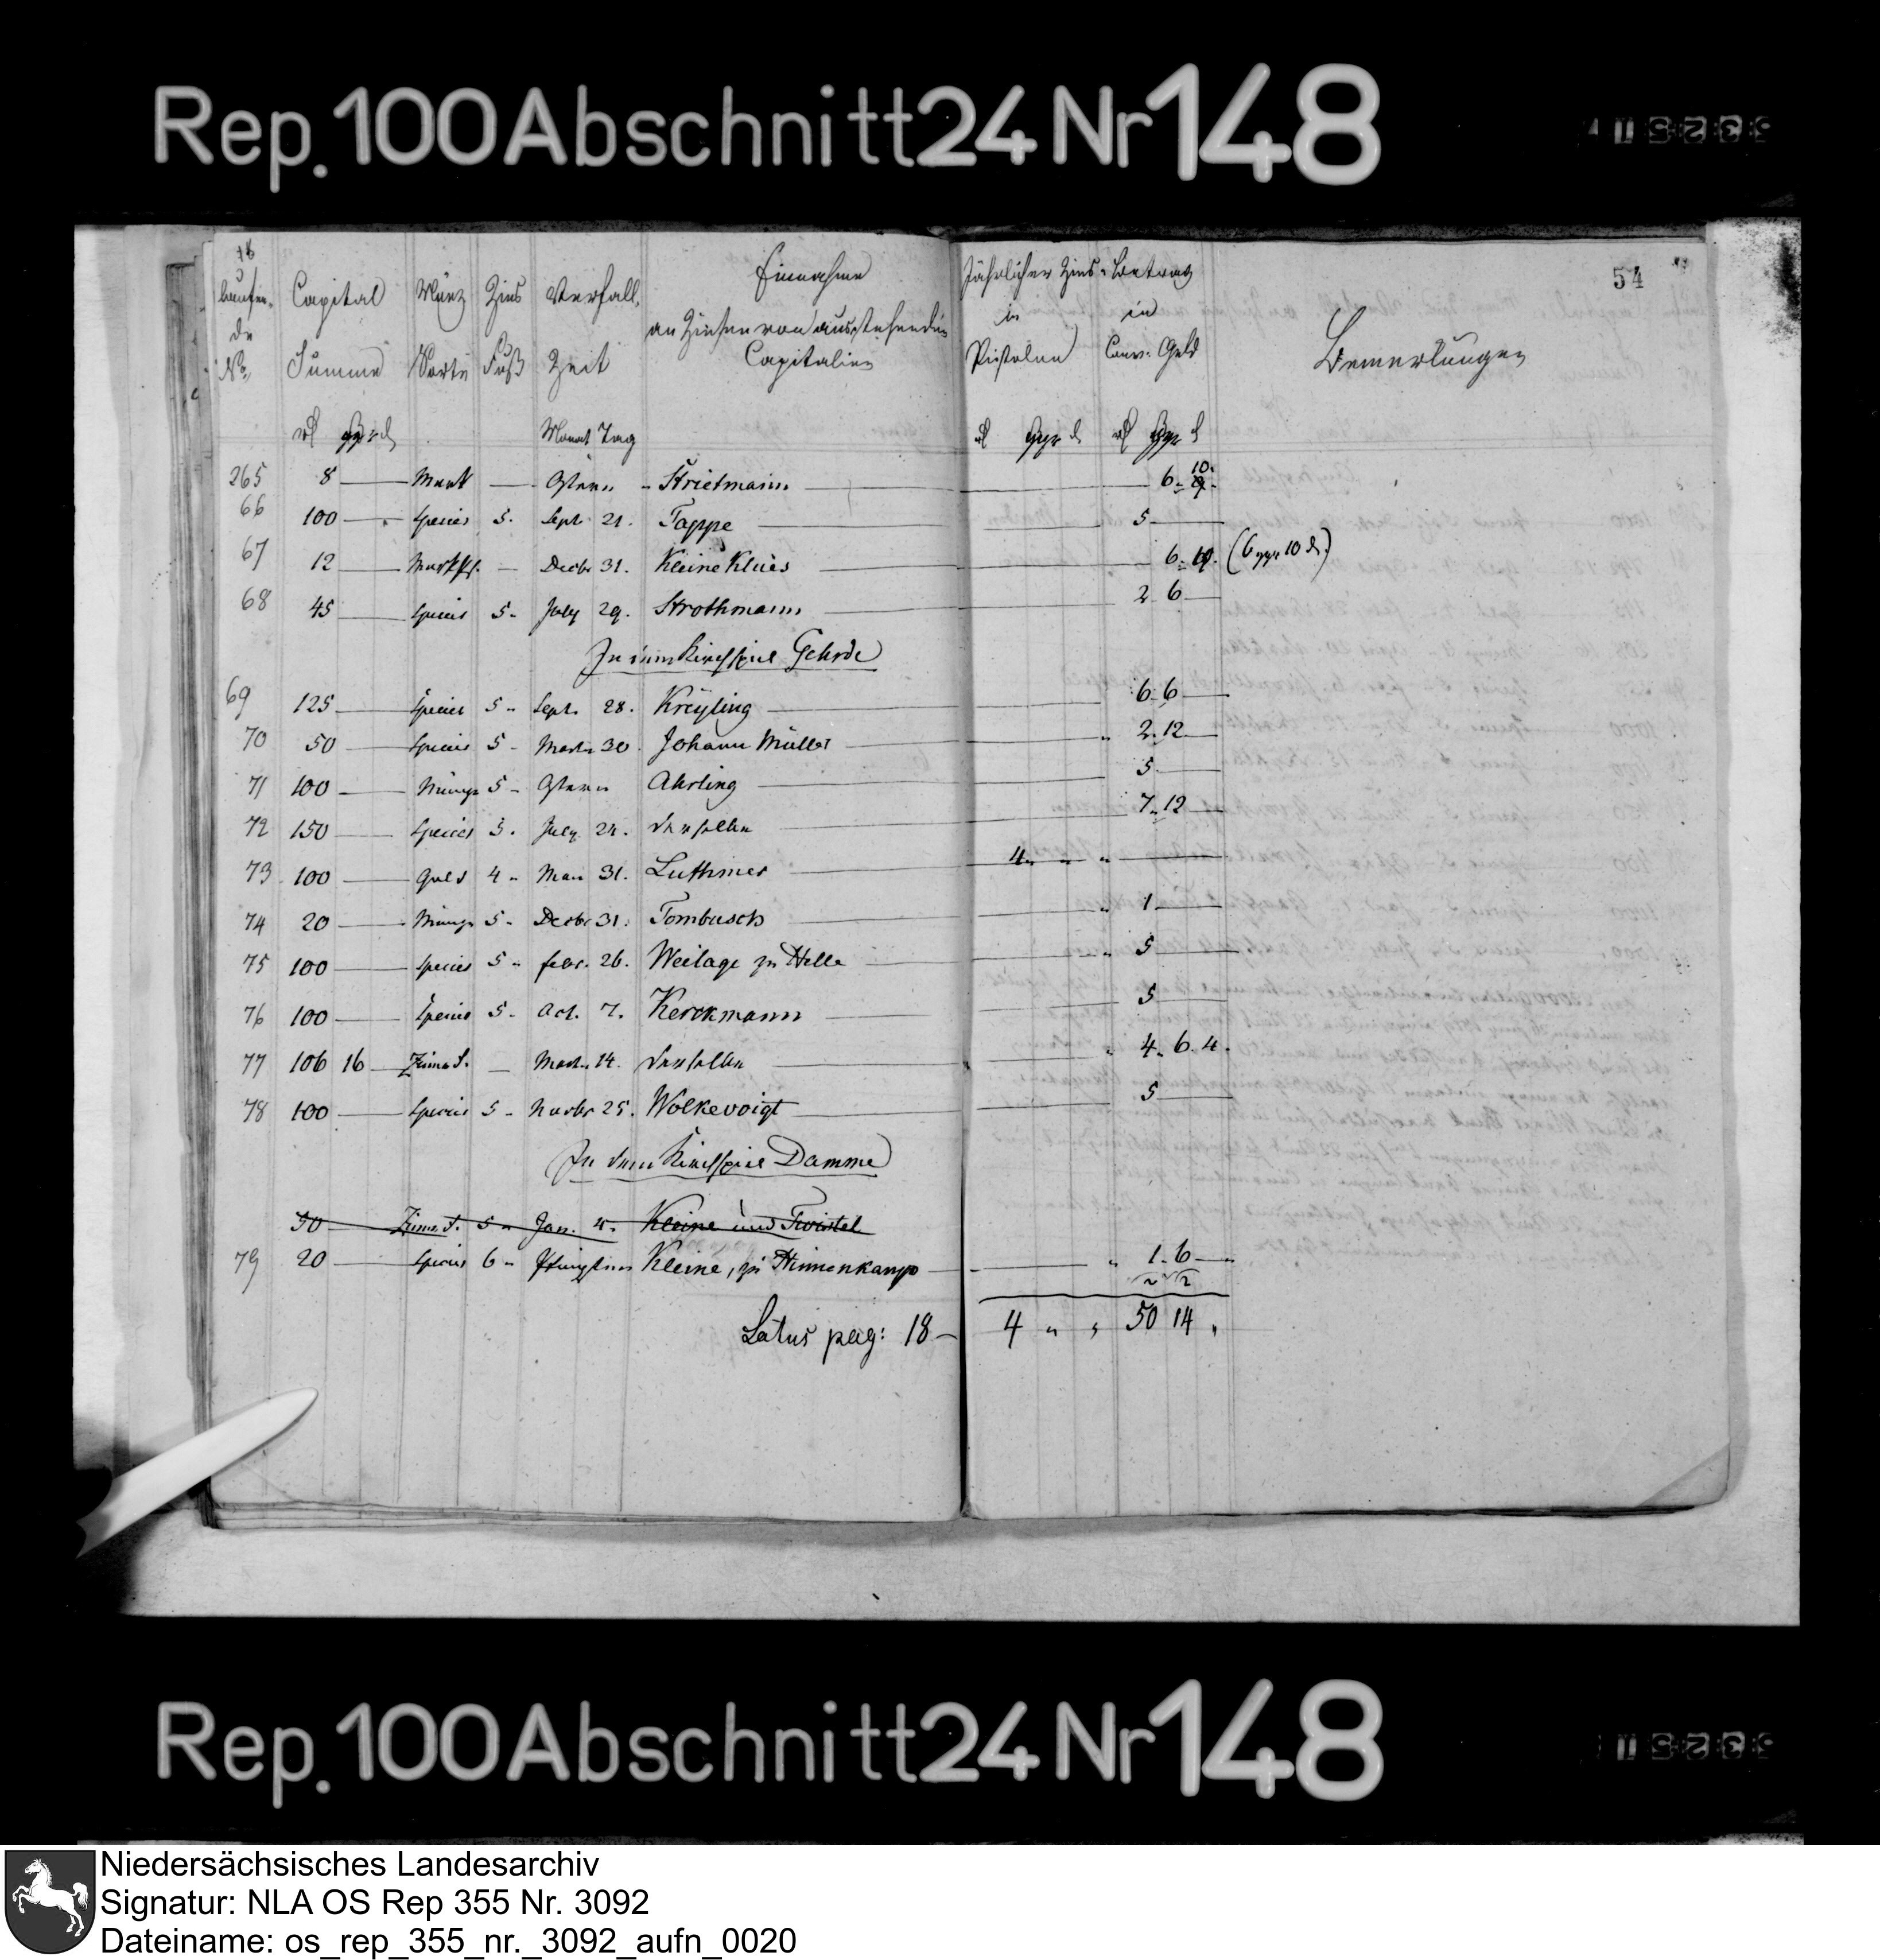 Rep. 100 Abschnitt 24 Nr 148
54
Laufen- Capital Münz Zins Verfall- Einnahme Jährlicher Zins-Betrag
de Summe Sorte Fuß Zeit an Zinsen von ausstehenden in in Bemerkungen
No. Capitalien Pistolen Conv. Geld
Monat Tag
265 8 — Mark — Ostern " Strietmann — 6. 10.
66 100 — Species 5. Sept. 21. Tappe — 5 —
67 12 — — Decbr 31. Kleine Klües — 6. 10. (6 ggr 10 d.)
68 45 — Species 5 - July 29. Strothmann — 2 6 —
In dem Kirchspiel Gehrde
69 125 — Species 5 - Sept. 28. Kreyling — 6. 6 —
70 50 — Species 5 - 30. Johann Müller — 2. 12 —
71 100 — Münze 5 - Ostern Ahrling — 5 —
72 150 — Species 5. July 24. derselbe — 7. 12 —
73 100 — Gold 4 - 31. Luthmer — 4 " " —
74 20 — Münze 5 - Decbr 31. Tombusch — 1 —
75 100 — Species 5 - Febr. 26. Weilage zu Helle — 5 —
76 100 — Species 5 - Oct. 7. Kerckmann — 5 —
77 106 16 — — 14. derselbe — 4. 6. 4.
78 100 — Species 5 - Novbr 25. Wolkevoigt — 5 —
In dem Kirchspiel Damme
50 — 5 - Jan. 4. Kleine und Twistel
79 20 — Species 6 - Pfingsten Kleine, zu Hinnenkamp — " 1. 6 —
Latus pag: 18 — 4 " " 50 14 "
Rep. 100 Abschnitt 24 Nr 148
Niedersächsisches Landesarchiv
Signatur: NLA OS Rep 355 Nr. 3092
Dateiname: os_rep_355_nr._3092_aufn_0020